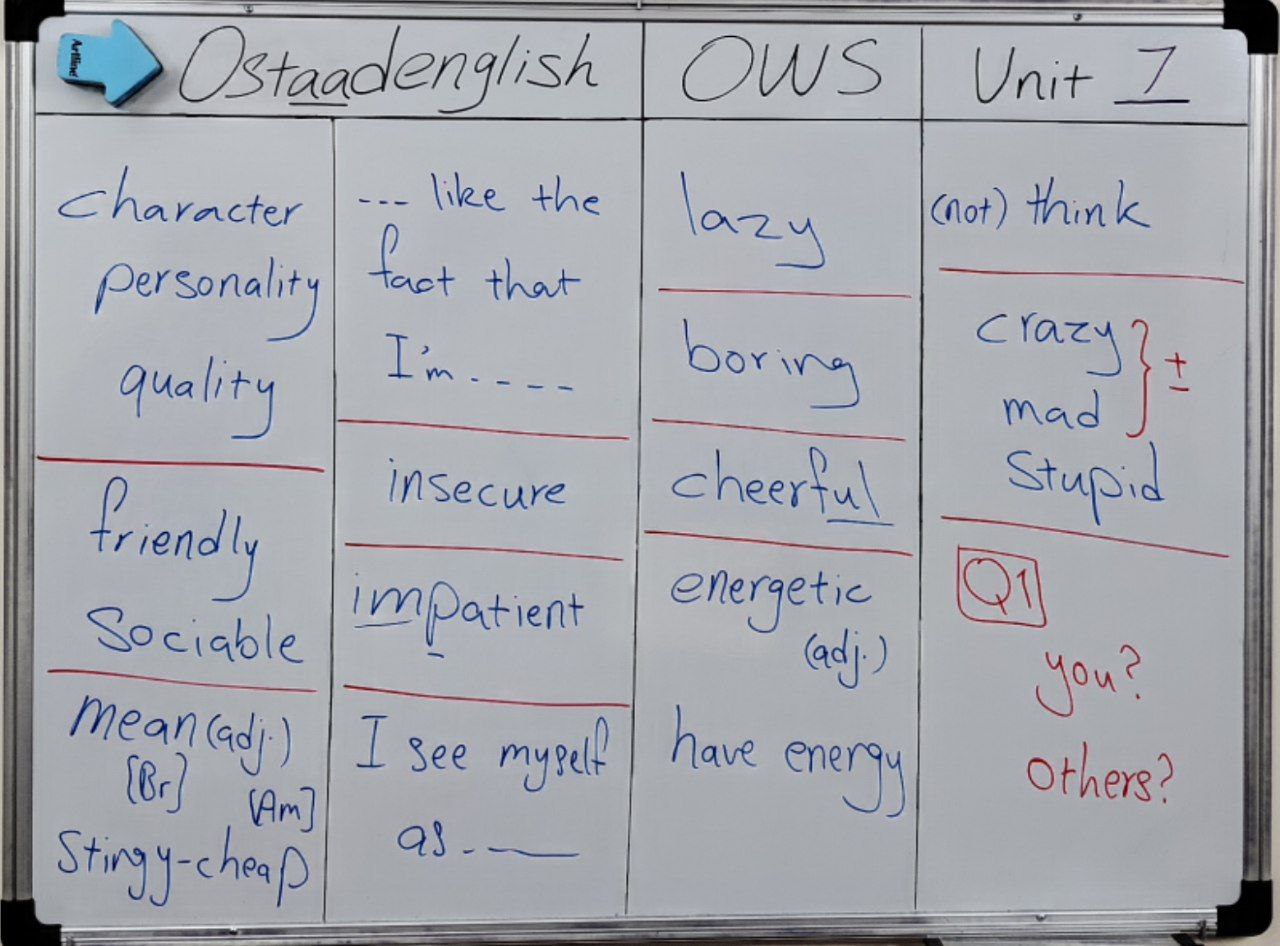 Artline
Ostaadenglish
OWS
Unit 7
character
personality
quality
friendly
Sociable
mean (adj.)
[Br]
[Am]
Stingy-cheap
--- like the
fact that
I'm - - - -
insecure
impatient
I see myself
as - ___
lazy
boring
cheerful
energetic
(adj.)
have energy
(not) think
crazy
mad
±
Stupid
Q1
you?
Others?